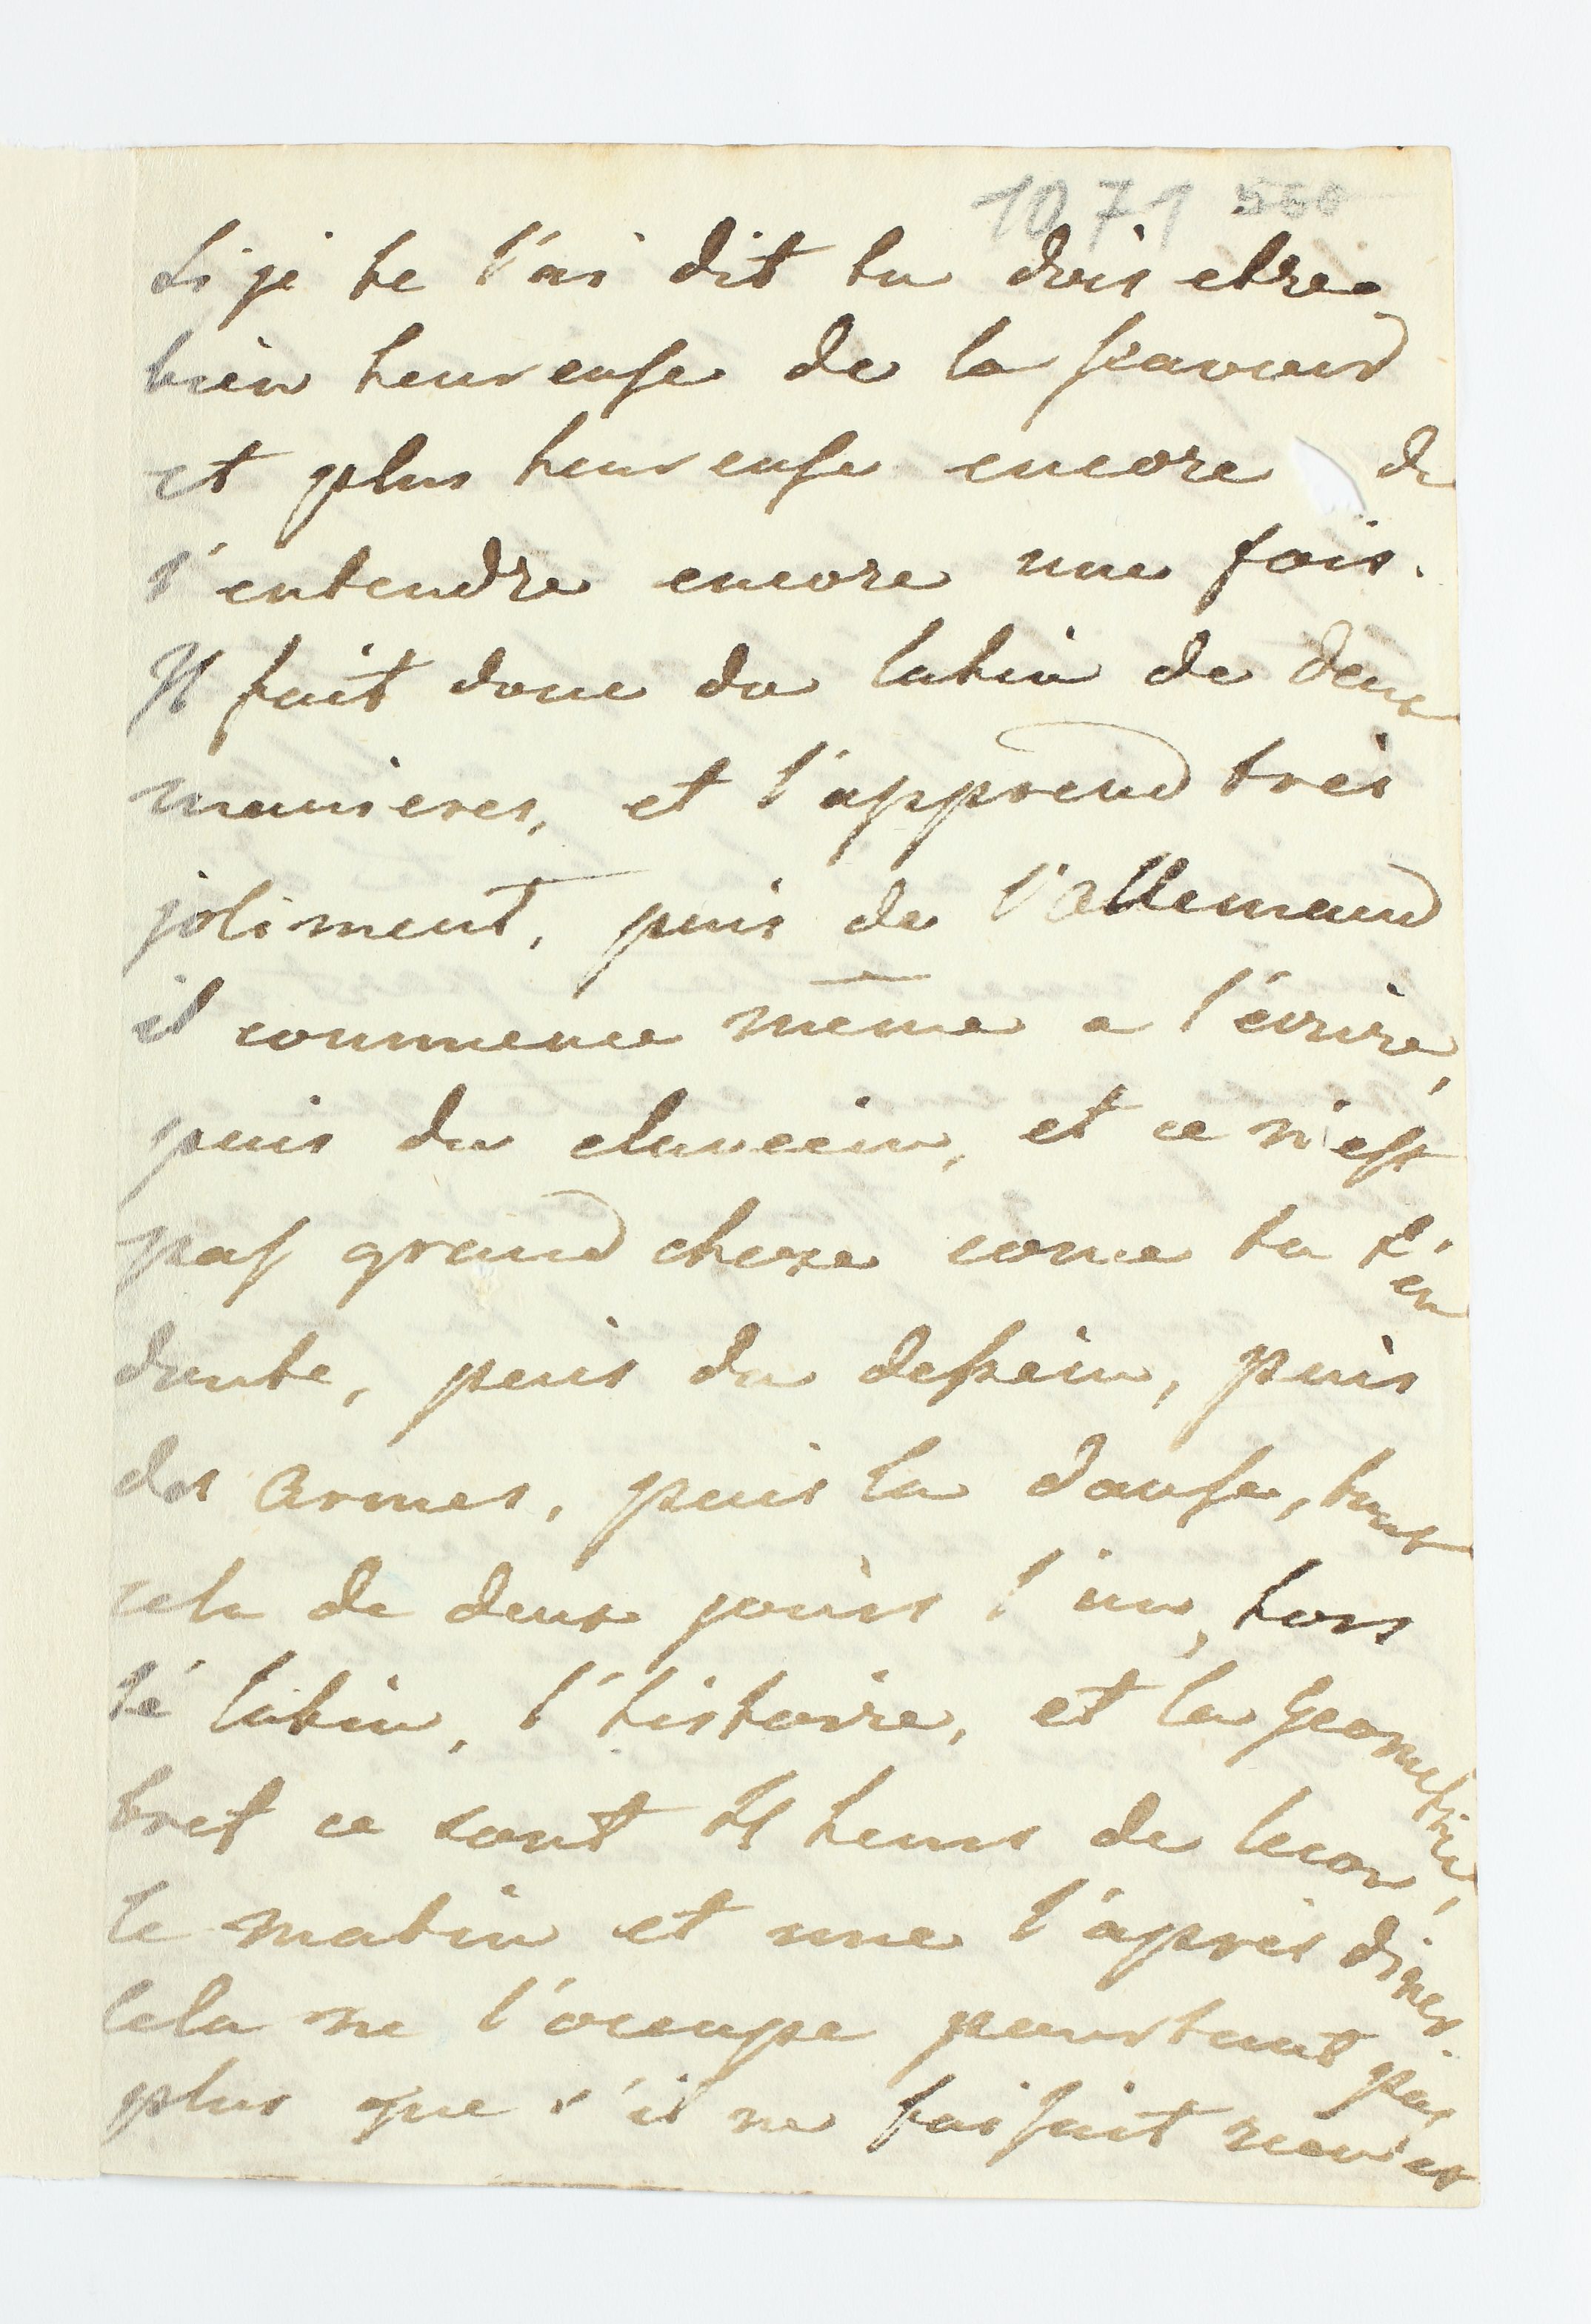 1071 560
si je te l'ai dit tu dois etre
bien heureuse de le sçavoir
et plus heureuse encore de
l'entendre encore une fois.
Il fait donc du latin de deux
manieres, et l'apprend très
joliment, puis de l'Allemand
il commence même a l'écrire,
puis du clavecin, et ce n'est
pas grand chose come tu t'en
doute, puis du dessein, puis
des Armes, puis la danse, tout
cela de deux jours l'un, hors
lé latin, l'histoire, et la Geometrie,
bref ce sont heurs de lecon,
le matin et une l'après diner.
Cela ne l'ocupe pourtant pas
plus que s'il ne faisait rien et